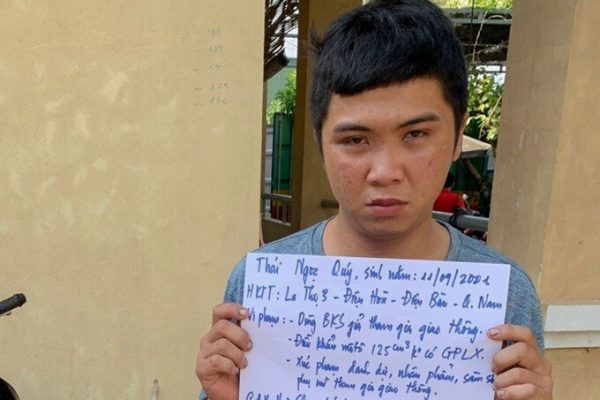 Thái Ngọc Quý, sinh năm: 22/09/2001
HKTT: La Thọ 3 - Điện Hoà - Điện Bàn - Q. Nam
Vi phạm: - Dùng BKS giả tham gia giao thông.
- Điều khiển môtô 125cm³ k° có GPLX.
- Xúc phạm danh dự, nhân phẩm, sàm sỡ
phụ nữ tham gia giao thông.